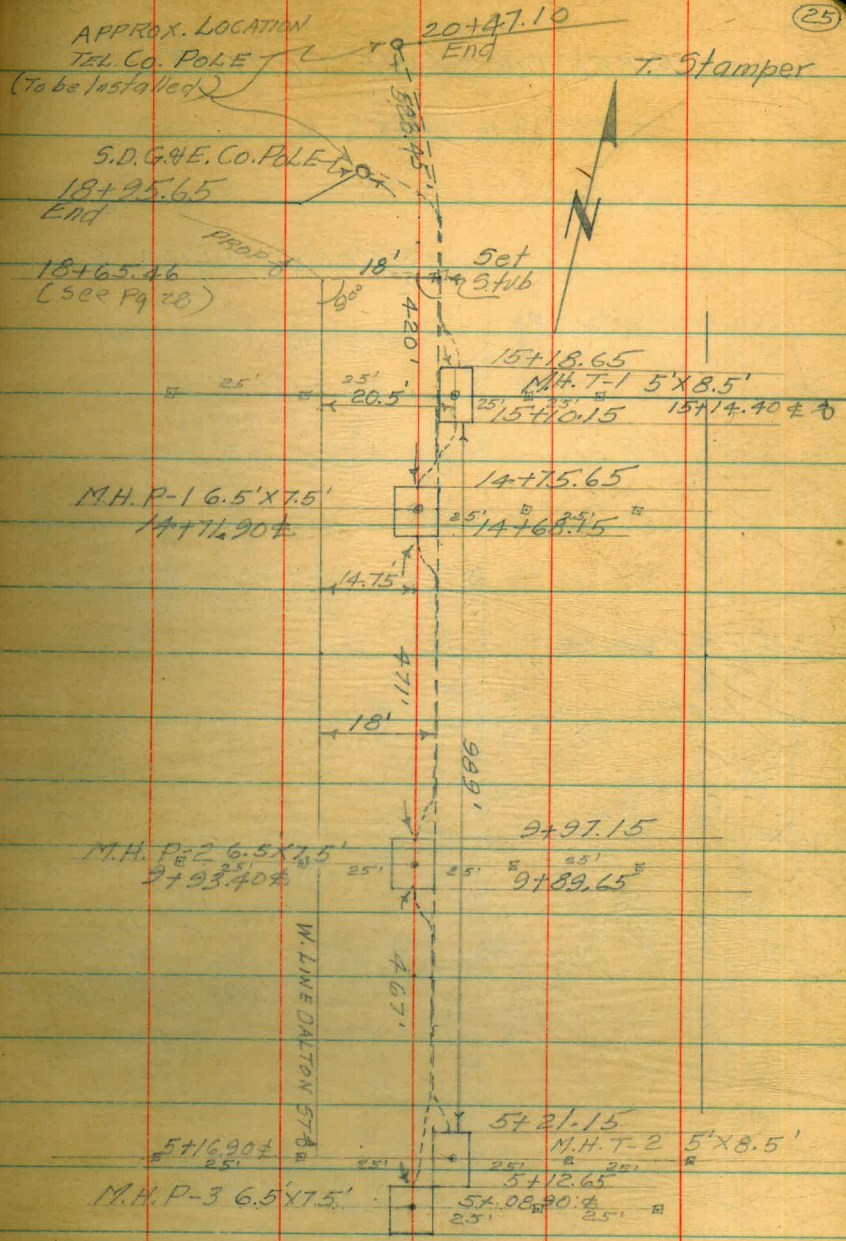 25
APPROX. LOCATION
TEL. CO. POLE
(To be Installed)
20+47.10
End
T. Stamper
588.45'
S.D.G.&E. CO. POLE
18+95.65
End
N
PROP.
18+65.46
(See Pg 28)
90°
18'
Set
Stub
420'
15+18.65
M.H. T-1 5'X8.5'
25' 25' 20.5' 25' 25'
15+10.15
15+14.40 ℄
14+75.65
M.H. P-1 6.5'X7.5'
14+71.90 ℄
25' 25'
14+68.15
14.75'
471'
18'
989'
9+97.15
M.H. P-2 6.5'X7.5'
9+93.40 ℄
25' 25' 25' 25'
9+89.65
W. LINE DALTON ST.
467'
5+21.15
5+16.90 ℄
M.H. T-2 5'X8.5'
25' 25' 25' 25'
5+12.65
M.H. P-3 6.5'X7.5'
5+08.90 ℄
25' 25'